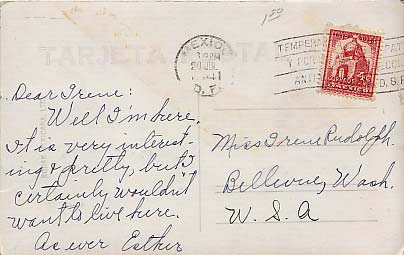 1.50
TARJETA POSTAL
MEXICO
24 JUL.
1941
D.F.
TEMPERA
Y
D.S.P.
4c
MEXICO
Dear Irene:
Well I'm here.
It is very interest-
ing & pretty, but I
certainly wouldn't
want to live here.
As ever Esther
Miss Irene Rudolph.
Bellevue, Wash.
U.S.A